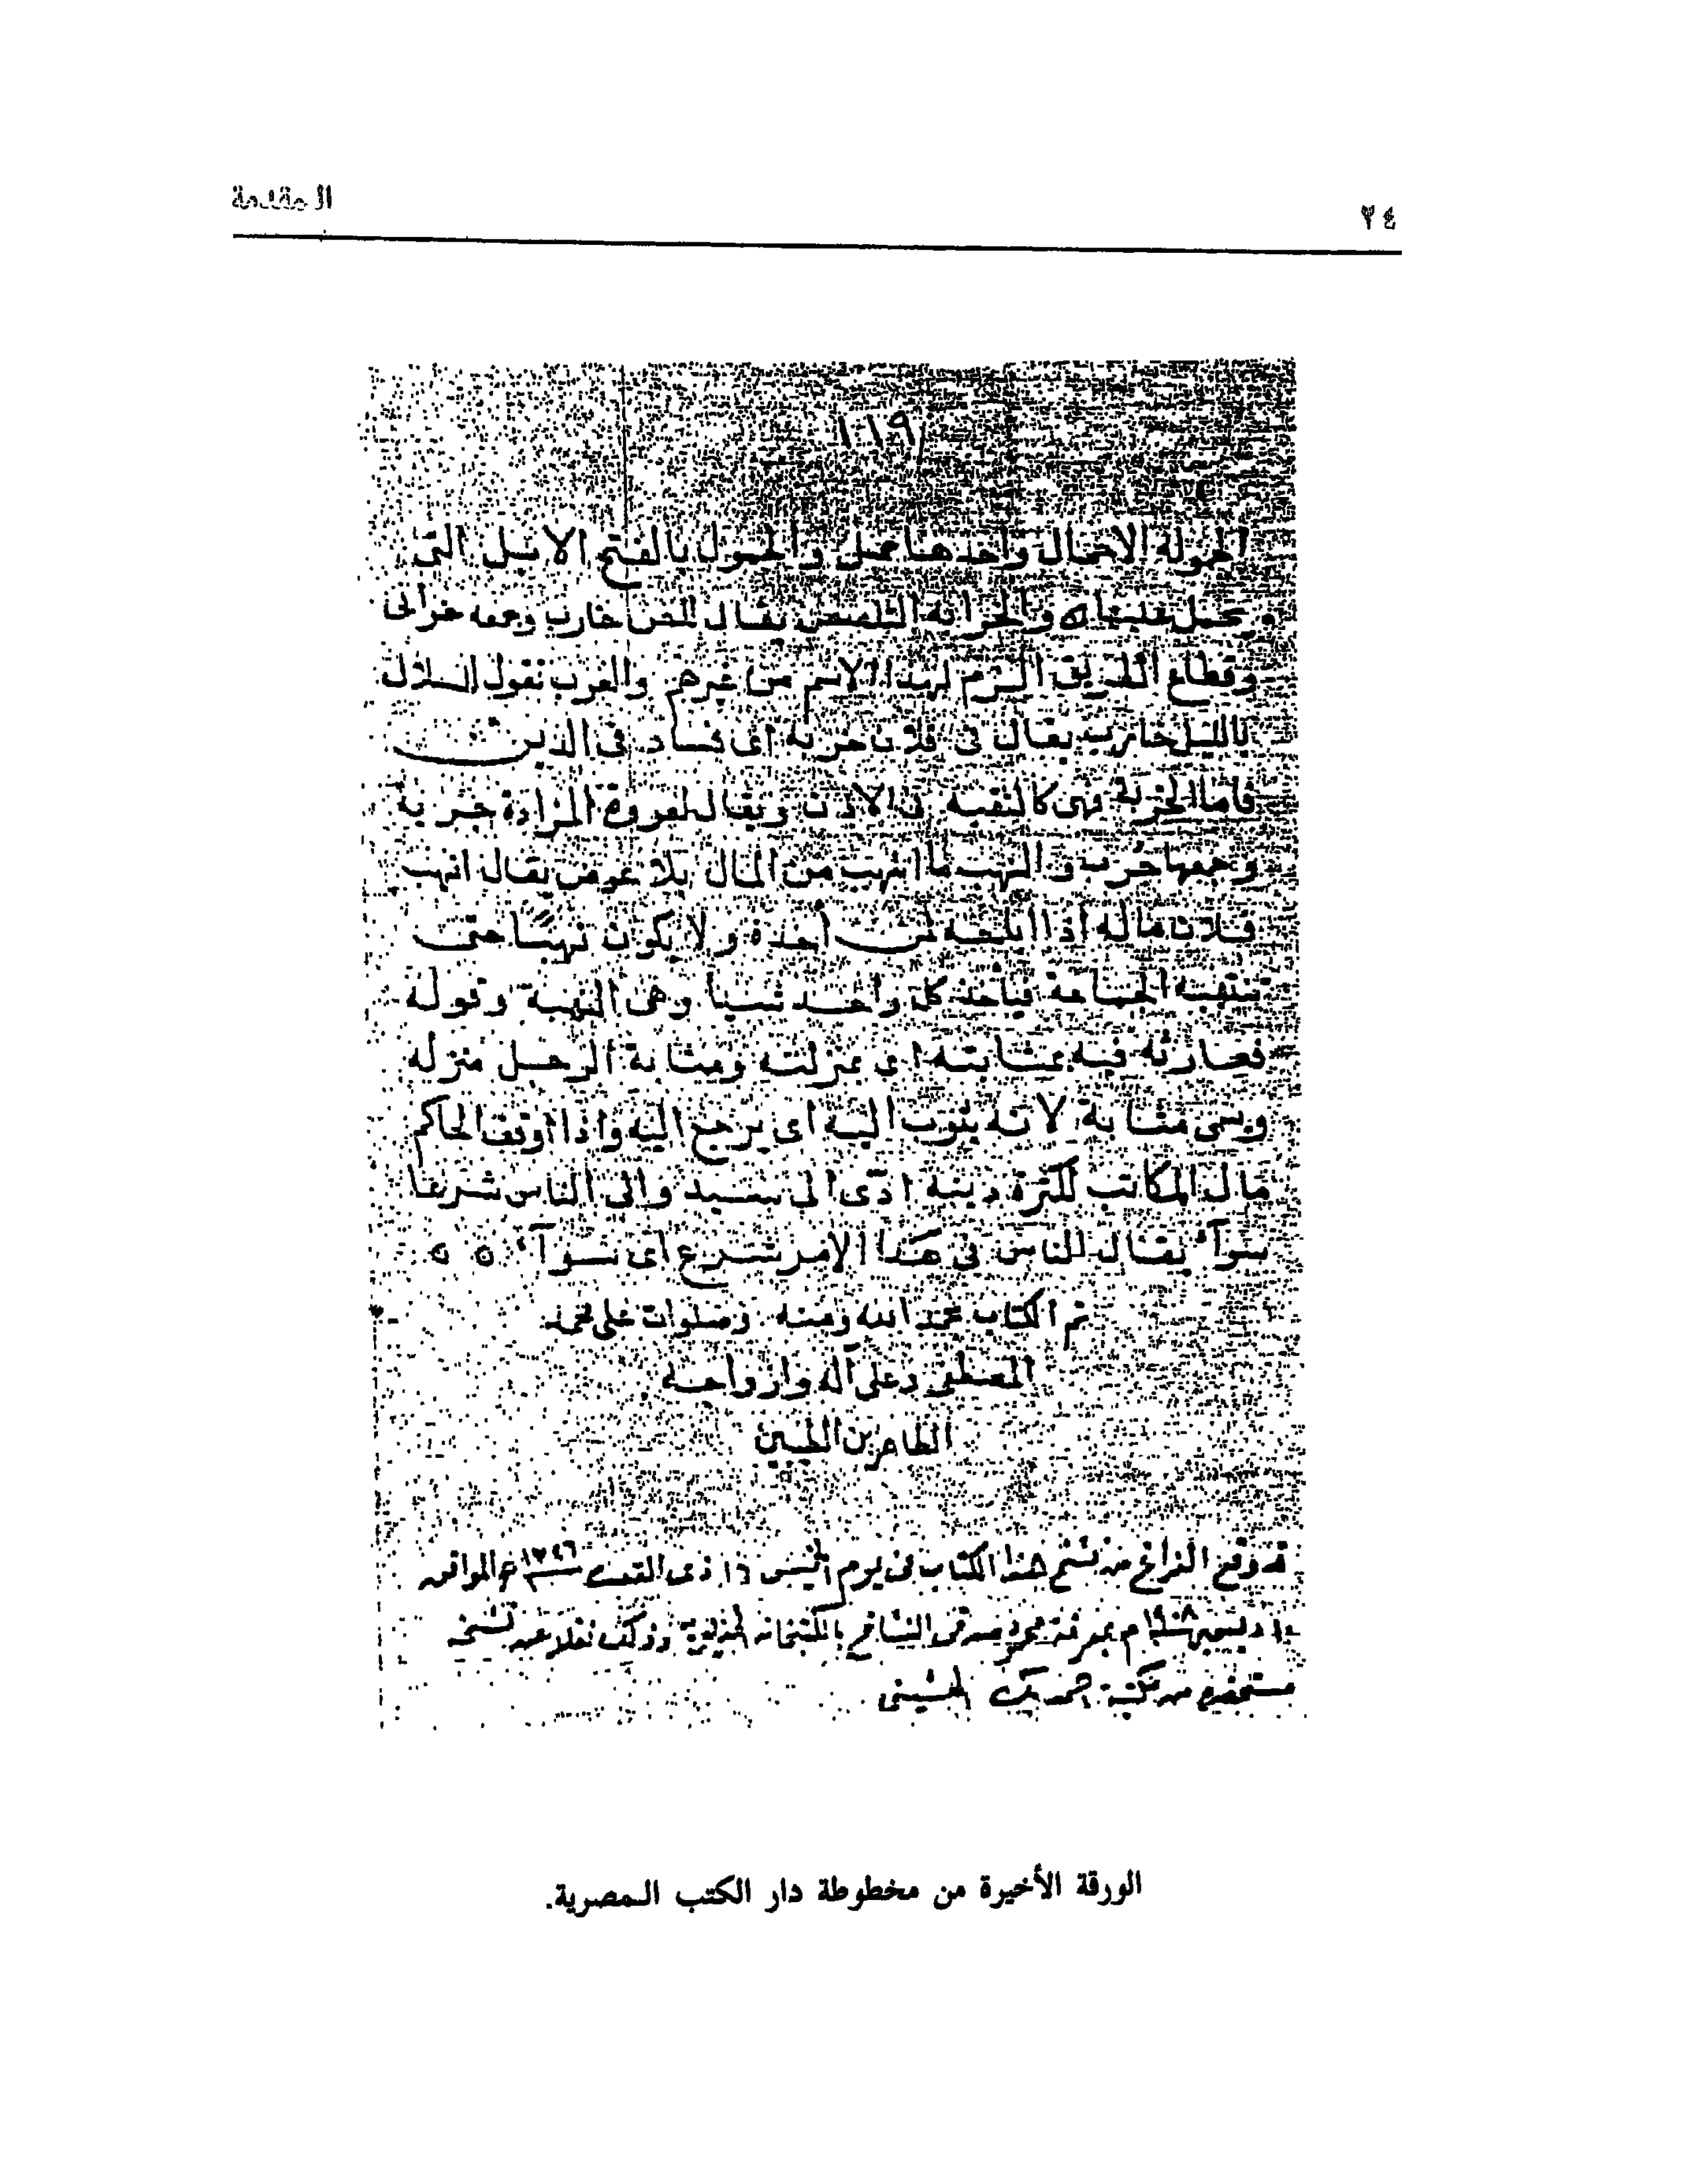 ٢٤
المقدمة
الحمولة الاحمال واحدها حمل والحمول بالفتح الابل التى
يحمل عليها ٥ والخرابة التلصص يقال للص خارب وجمعه خراب
وقطاع الطريق الزم لهذا الاسم من غيرهم والعرب تقول للسلال
بالليل خارب يقال فى فلان خربة اى فساد فى الدين
فاما الخربة فهى كالثقبة فى الاذن ويقال لعروة المزادة خربة
وجمعها خرب والنهب ما انتهب من المال بلا عوض يقال انهب
فلان ماله اذا اباحه لمن أخذه ولا يكون نهبا حتى
تنتهبه الجماعة فيأخذ كل واحد شيئا وهى النهبة وقوله
فصار ورثته فيه بمثابته اى بمنزلته ومثابة الرجل منزله
ويسمى مثابة لانه يثوب اليه اى يرجع اليه واذا اوقف الحاكم
مال المكاتب لكثرة دينه ادّى الى سيده والى الناس شرعا
سوآء يقال الناس فى هذا الامر شرع اى سوآء ٥ ٥
تم الكتاب بحمد الله ومنه وصلوات على محمد
المصطفى وعلى آله وازواجه
الطاهرين الطيبين
قد وقع الفراغ من نسخ هذا الكتاب فى يوم الخميس ذى القعدة سنة ١٣٢٦ الموافق
ديسمبر سنة ١٩٠٨ م بمعرفة محمود صدقى النساخ بالكتبخانه الخديوية وذلك نقلا عن نسخه
مستحضره من مكتبة احمد بك الحسينى
الورقة الأخيرة من مخطوطة دار الكتب المصرية.